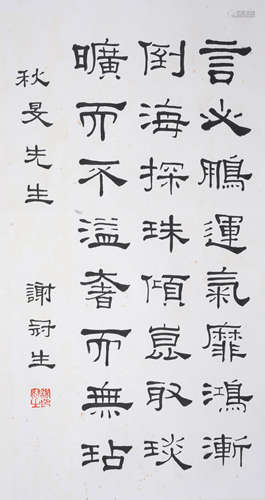 言必鵬運氣靡鴻漸
倒海探珠傾崑取琰
曠而不溢奢而無玷
秋旻先生
謝冠生